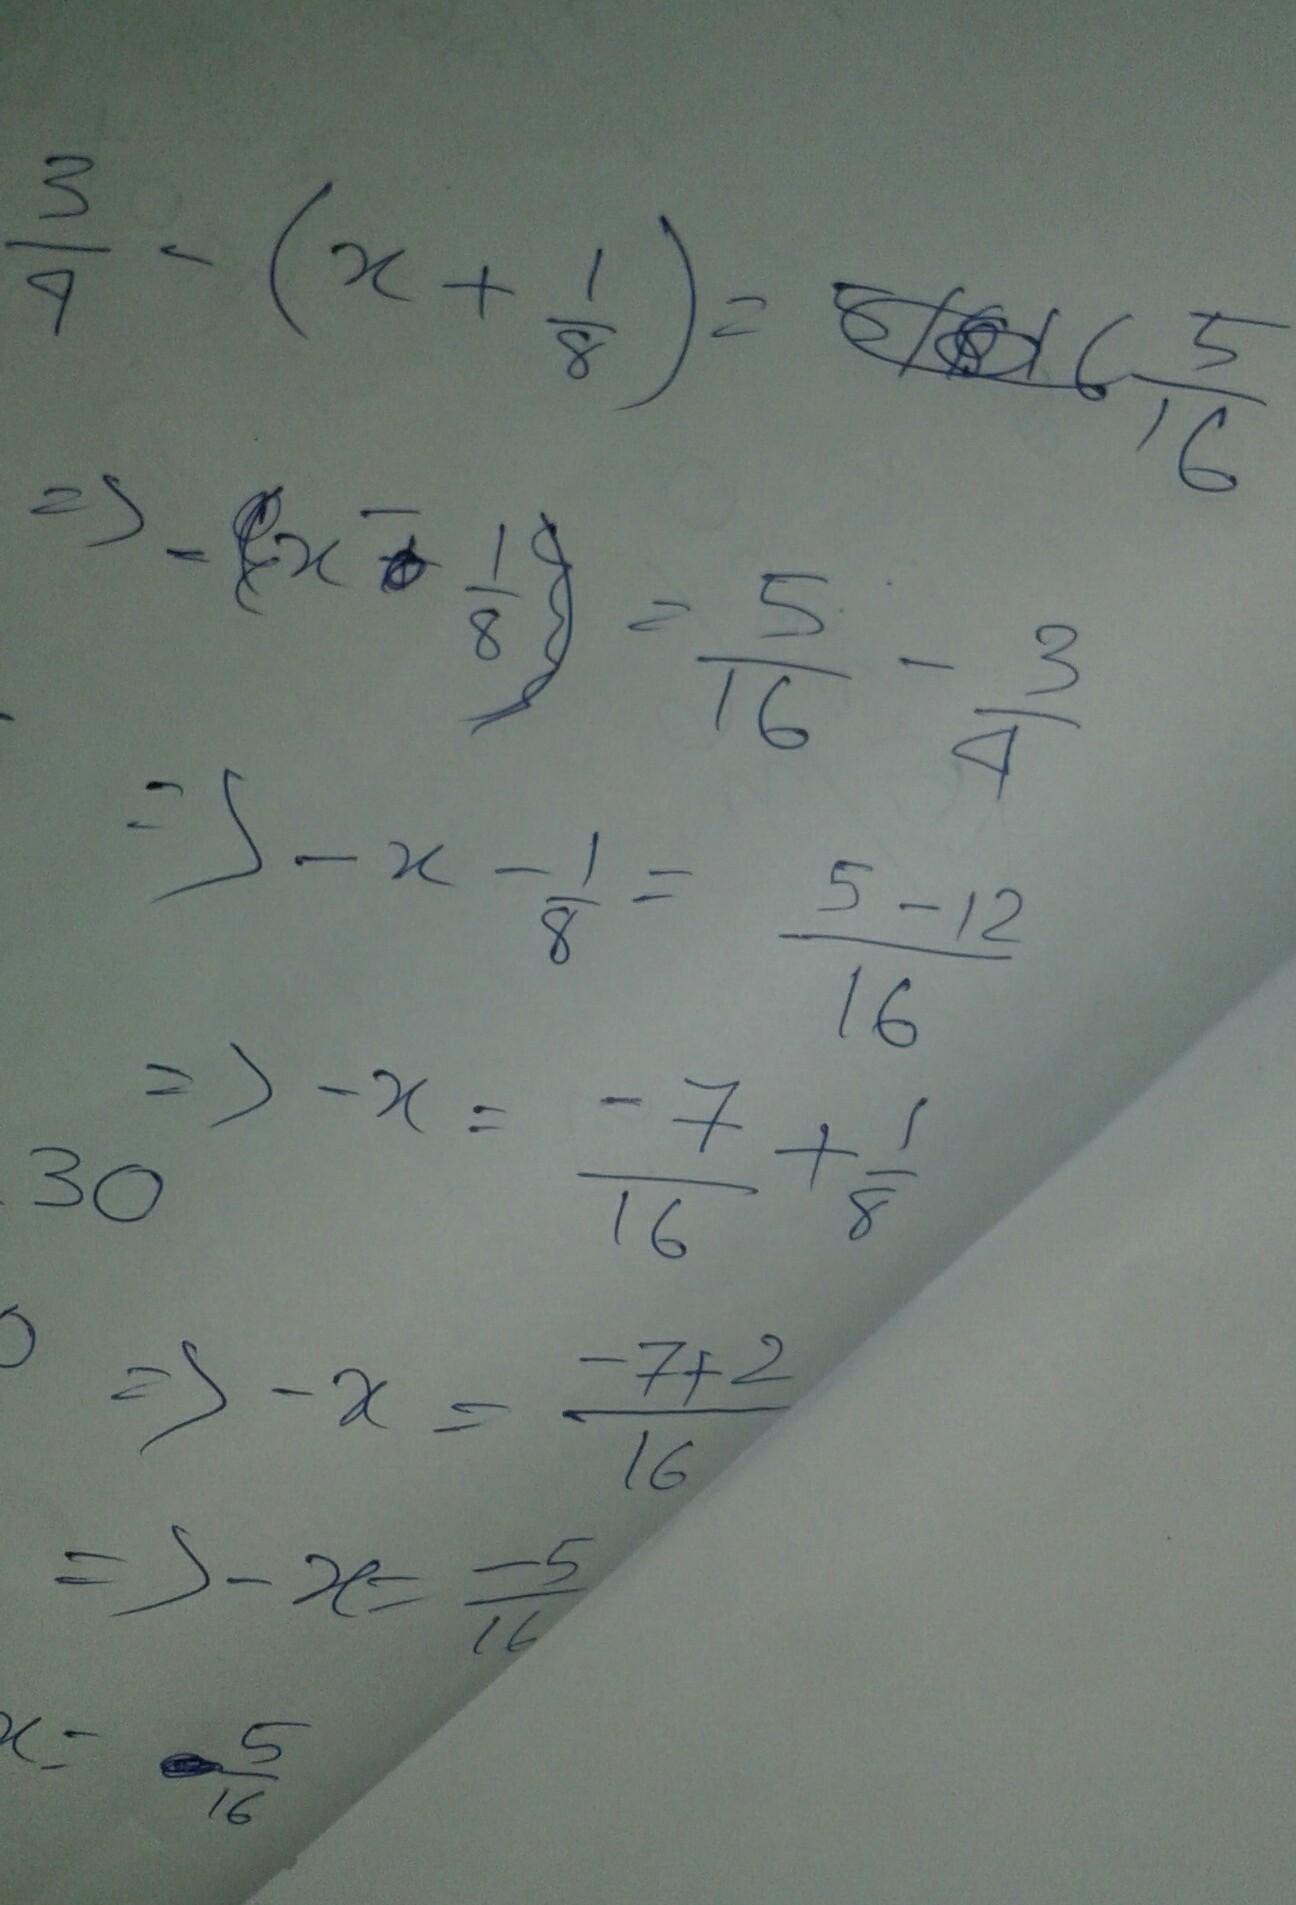 3/4 - (x + 1/8) = 5/16
=> - x - 1/8 = 5/16 - 3/4
=> - x - 1/8 = (5 - 12)/16
=> - x = -7/16 + 1/8
30
=> - x = (-7 + 2)/16
=> - x = -5/16
x = 5/16